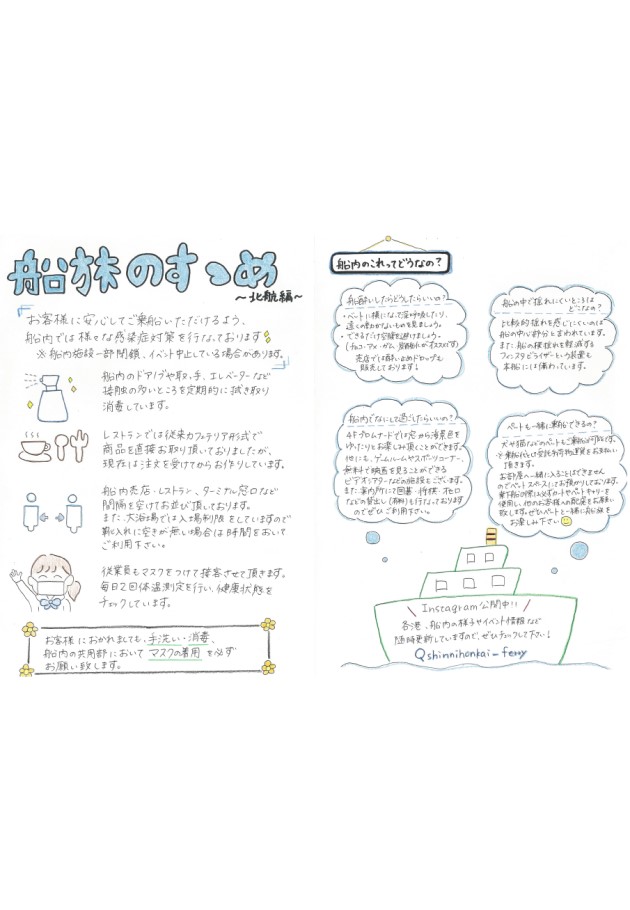 船旅のすゝめ
～北航編～
お客様に安心してご乗船いただけるよう、
船内では様々な感染症対策を行なっております
※船内施設一部閉鎖、イベント中止している場合があります。
船内のドアノブや取っ手、エレベーターなど
接触の多いところを定期的に拭き取り
消毒しています。
レストランでは従来カフェテリア形式で
商品を直接お取り頂いておりましたが、
現在は注文を受けてからお作りしています。
船内売店・レストラン、ターミナル窓口など
間隔を空けてお並び頂しております。
また、大浴場では入場制限をしていますので
靴入れに空きが無い場合は時間をおいて
ご利用下さい。
従業員もマスクをつけて接客させて頂きます。
毎日2回体温測定を行い、健康状態を
チェックしています。
お客様におかれましても、手洗い・消毒、
船内の共用部においてマスクの着用を必ず
お願い致します。
船内のこれってどうなの？
船酔いしたらどうしたらいいの？
・ベットに横になって深呼吸したり、
遠くの動かないものを見ましょう。
・できるだけ空腹を避けましょう。
(チョコ・アメ・ガム、炭酸水がオススメです)
売店では酔い止めドロップも
販売しております！
船の中で揺れにくいところは
どこなの？
比較的揺れを感じにくいのは
船の中心部分と言われています。
また船の横揺れを軽減する
フィンスタビライザーという装置も
本船には備わっています。
船内でなにして過ごしたらいいの？
4Fプロムナードでは窓から海景色を
ゆったりとお楽しみ頂くことができます。
他にも、ゲームルームやスポーツコーナー、
無料で映画を見ることができる
ビデオシアターなどの施設もございます。
また案内所にて囲碁・将棋・オセロ
などの貸出し(有料)も行なっております
のでぜひご利用下さい。
ペットも一緒に乗船できるの？
犬や猫などのペットもご乗船可能です。
※乗船代とは別途手荷物運賃をお支払い
頂きます。
お部屋へ一緒に入ることはできません
のでペットスペースにてお預かりしております。
乗下船の際は必ずカートやペットキャリーを
使用し、他のお客様への配慮をお願い
致します。ぜひペットと一緒に船旅を
お楽しみ下さい
Instagram公開中!!
各港、船内の様子やイベント情報など
随時更新していますので、ぜひチェックして下さい！
shinnihonkai_ferry